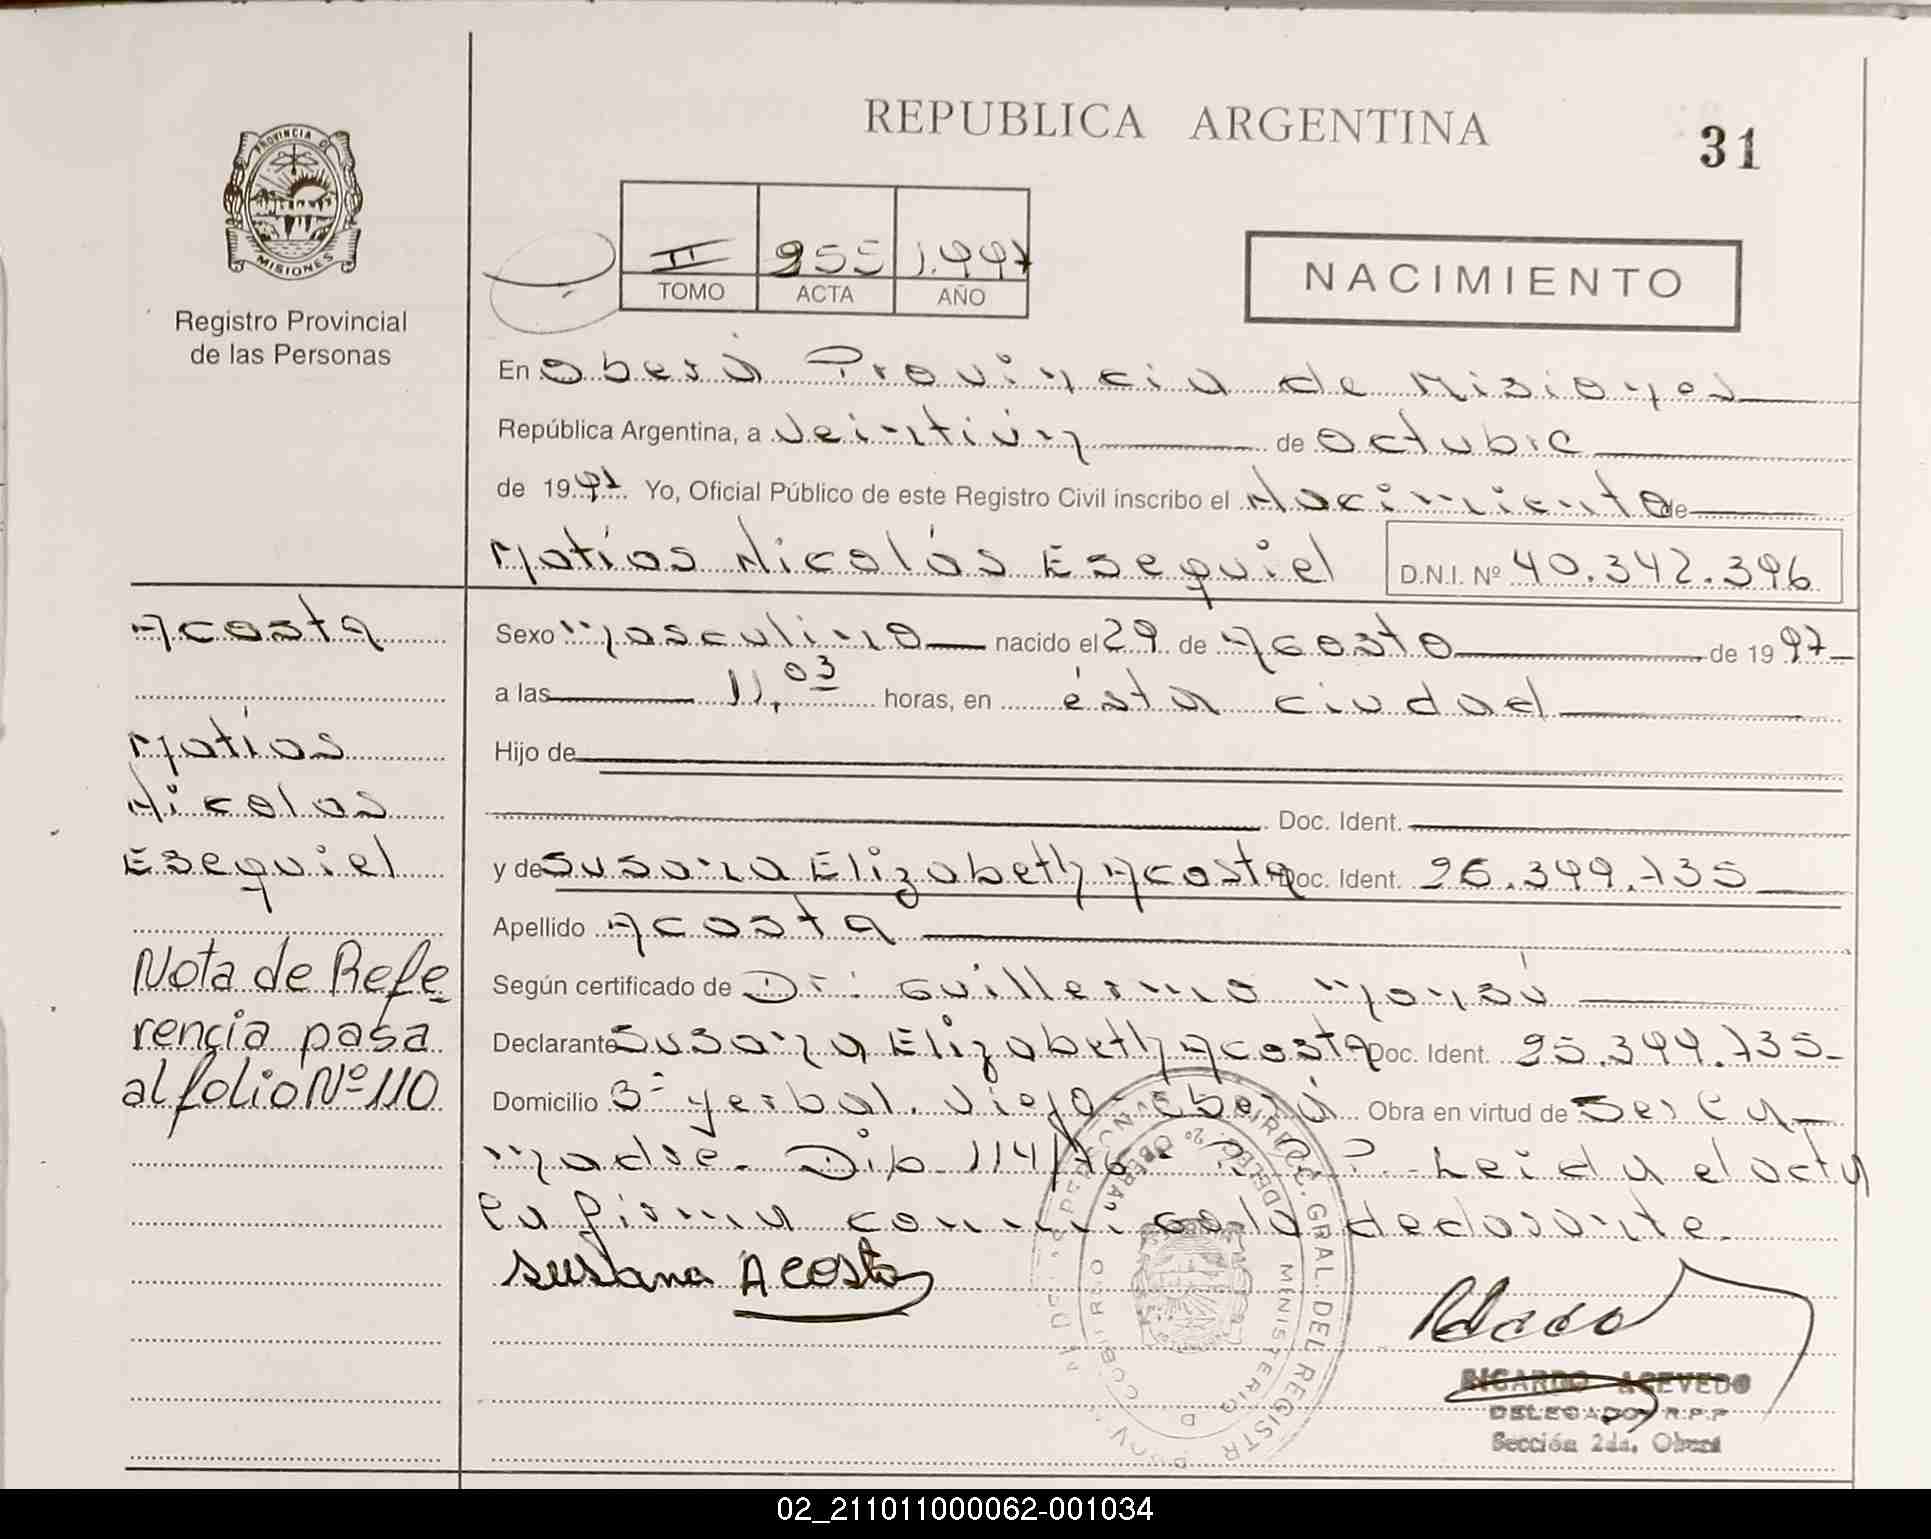 REPUBLICA ARGENTINA
31
PROVINCIA DE
MISIONES
Registro Provincial
de las Personas
II 955 1.997
TOMO ACTA AÑO
NACIMIENTO
En Oberá Provincia de Misiones
República Argentina, a Veintiún de Octubre
de 1997 Yo, Oficial Público de este Registro Civil inscribo el Nacimiento de
Matías Nicolás Esequiel D.N.I. Nº 40.342.396
Acosta
Matías
Nicolas
Esequiel
Nota de Refe-
rencia pasa
al folio Nº 110
Sexo Masculino nacido el 29 de Agosto de 1997
a las 11,03 horas, en ésta ciudad
Hijo de
Doc. Ident.
y de Susana Elizabeth Acosta Doc. Ident. 26.344.735
Apellido Acosta
Según certificado de Dr: Guillermo
Declarante Susana Elizabeth Acosta Doc. Ident. 25.344.735
Domicilio Yerbal Viejo Oberá Obra en virtud de Ser la
madre. Dip. 114/76 R.P.P. Leida el acta
la firma conmigo la declarante.
Susana Acosta
RICARDO ACEVEDO
DELEGADO R.P.P
Sección 2da. Oberá
02_211011000062-001034